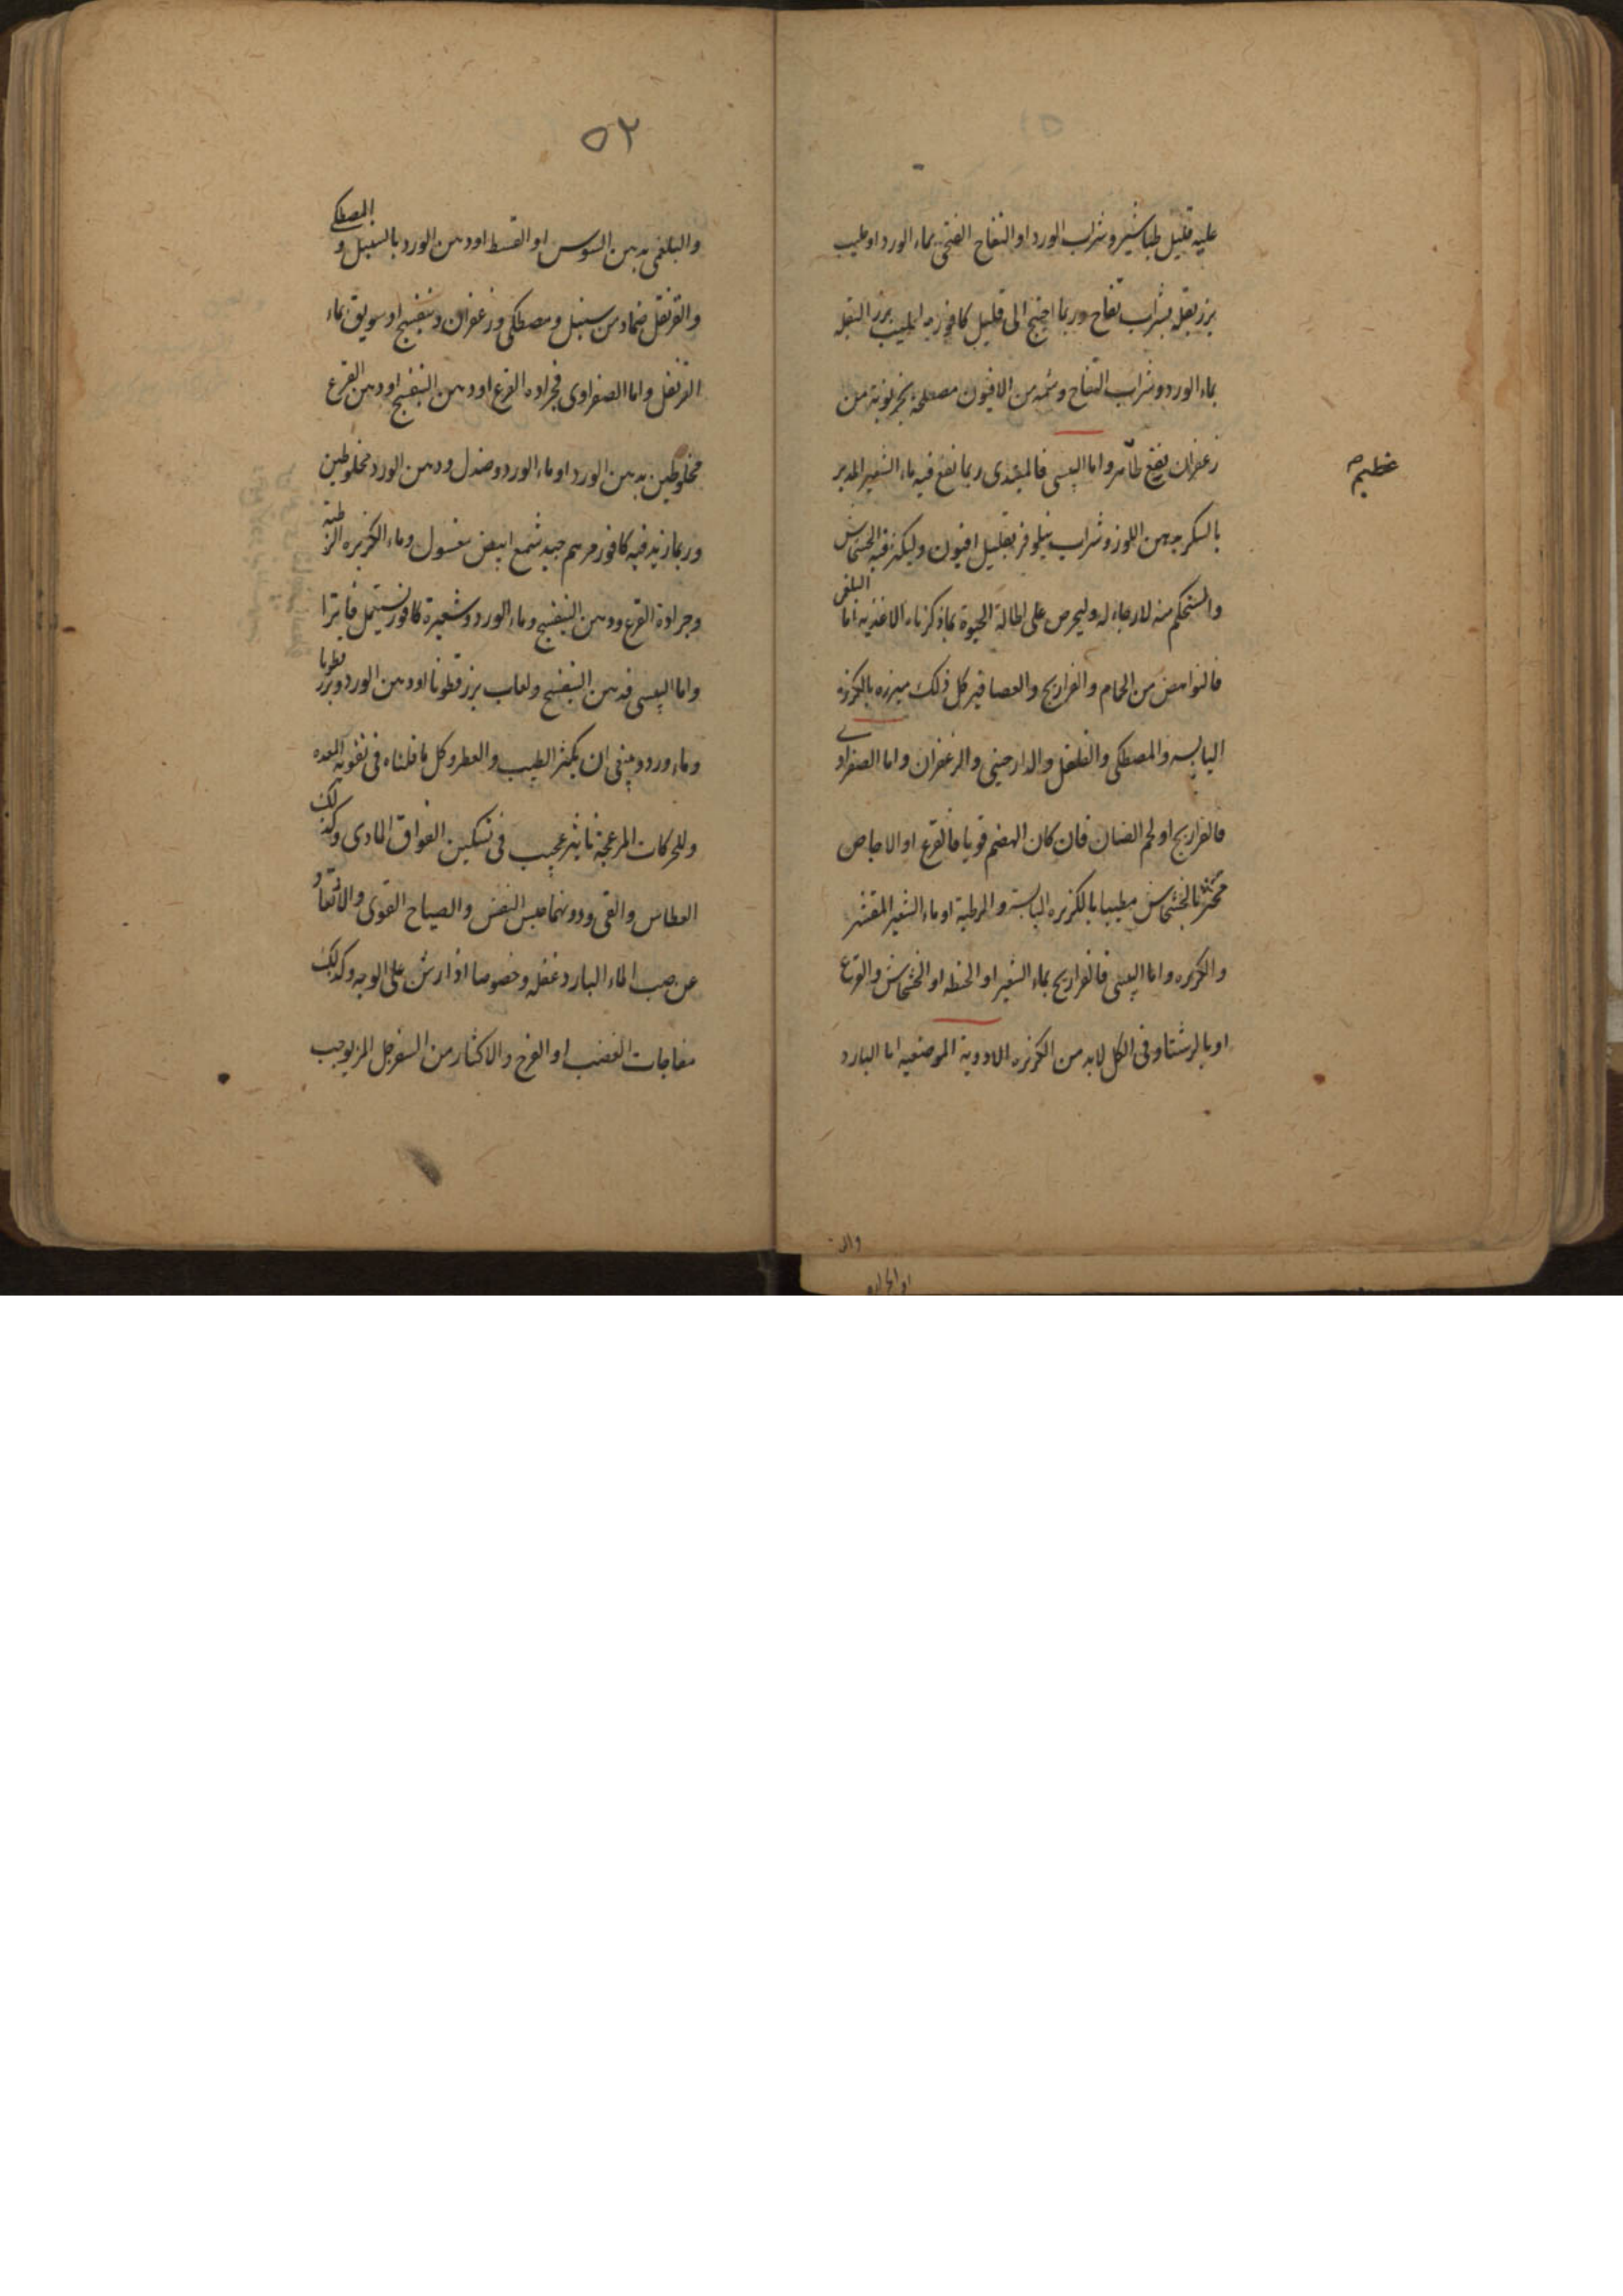 عليه قليل طباشير وشراب الورد او التفاح الفتحى بماء الورد او حليب
بزر بقله بشراب تفاح وربما احتيج الى قليل كافور مع حليب بزر البقله
بماء الورد وشراب التفاح وشمه من الافيون مصلحة بخرنوبة من
زعفران ينفع ظاهر واما اليبسى فالمبتدى ربما نفع فيه ماء الشعير المدبر
عظيم
بالسكر بدهن اللوز وشراب نيلوفر بقليل افيون وليكثر فيه الخشخاش
والمستحكم منه لا رجاء له وليحرص على اطالة الحيوة بما ذكرناه الاغذيه اما البلغمى
فالنواهض من الحمام والفراريج والعصافير كل ذلك مبزره بالكزبره
اليابسه والمصطكى والفلفل والدارصينى والزعفران واما الصفراوى
فالفراريج او لحم الضان فان كان الهضم قويا فالقرع او الاجاص
مخثرا بالخشخاش مطيبا بالكزبره اليابسة والرطبة او ماء الشعير المقشر
والكزبره واما اليبسى فالفراريج بماء الشعير او الحنطه او الخشخاش والقرع
او بالرشتا وفى الكل لابد من الكزبره الادوية الموضعيه اما البارد
٥٢
والبلغمى بدهن السوس او القسط او دهن الورد بالسنبل والمصطكى
والقرنفل ضماد من سنبل ومصطكى وزعفران وبنفسج او سويق بماء
القرنفل واما الصفراوى فجراده القرع او دهن البنفسج او دهن القرع
مخلوطين بدهن الورد او ماء الورد وصندل ودهن الورد مخلوطين
وربما زيد فيه كافور مرهم جيد شمع ابيض مغسول وماء الكزبره الرطبة
وجرادة القرع ودهن البنفسج وماء الورد وشعيرة كافور يستعمل فاترا
واما اليبسى فدهن البنفسج ولعاب بزر قطونا او دهن الورد وبزر قطونا
وماء ورد وينبغى ان يكثر الطيب والعطر وكل ما قلناه فى تقوية المعده
وللحركات المزعجة تاثير عجيب فى تسكين الفواق المادى وكذلك
العطاس والقى ودونهما حبس النفس والصياح القوى والارتعاد
عن صب الماء البارد غفله وخصوصا اذا رش على الوجه وكذلك
مفاجات الغضب او الفزع والاكثار من السفرجل المز يوجب